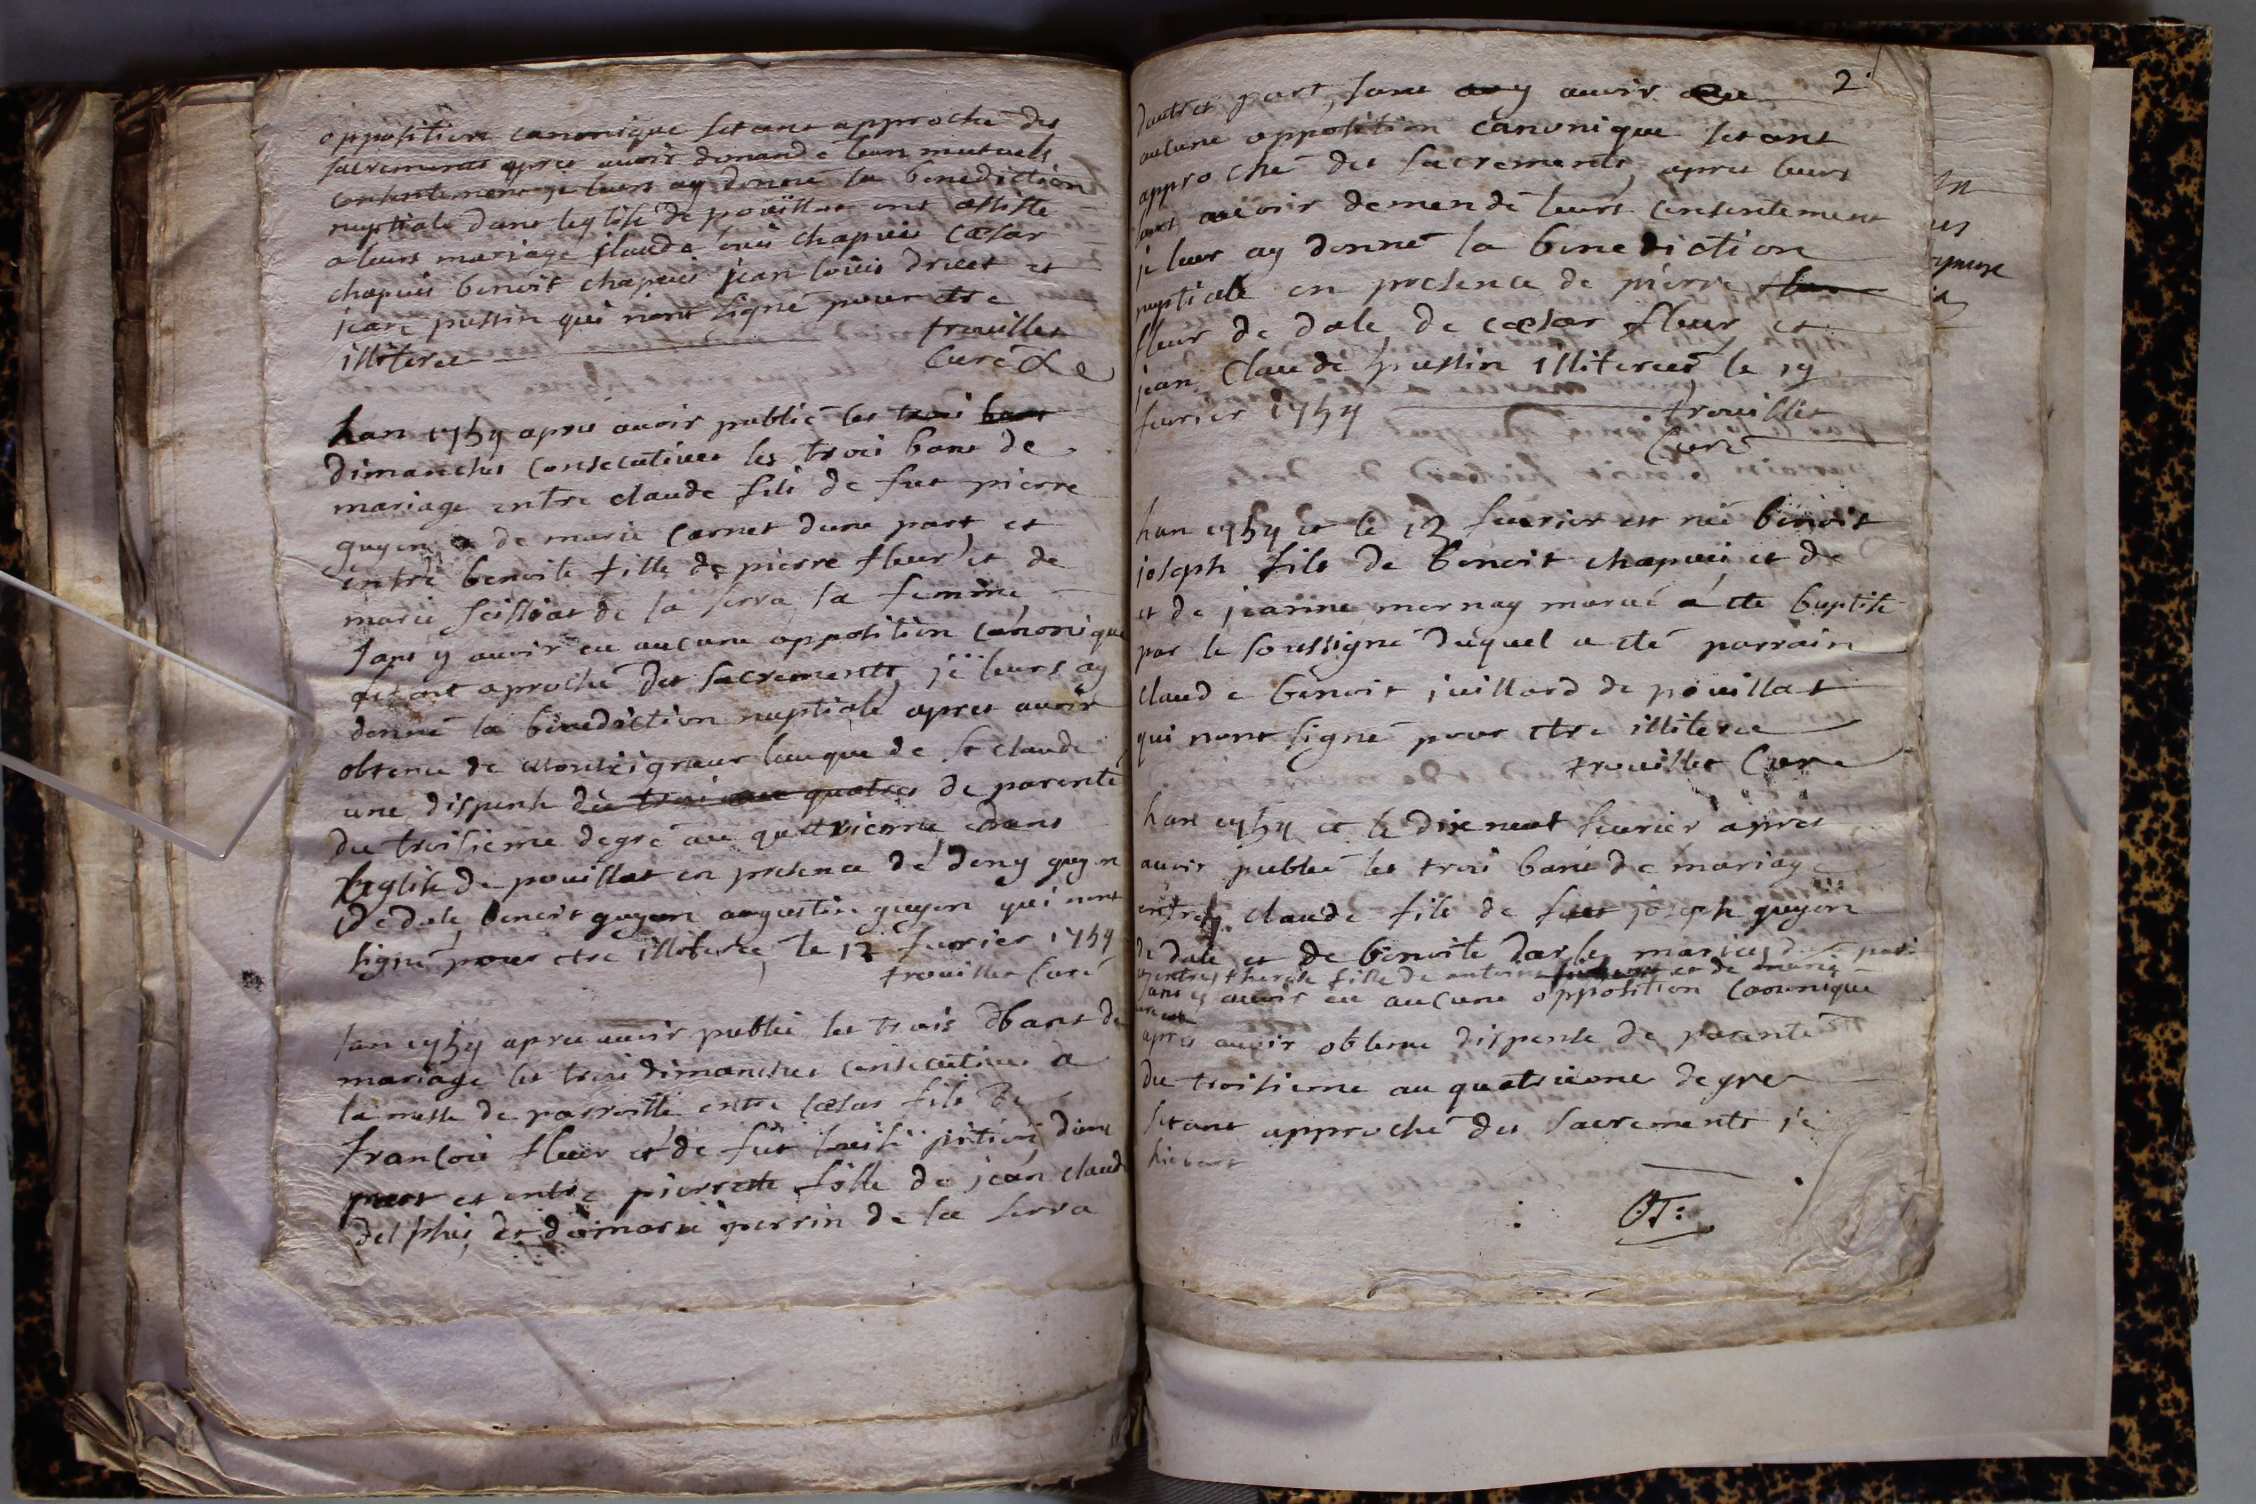 opposition canonique setant approché des
sacrements apres avoir demandé leurs mutuels
consentement je leurs ay donné la benediction
nuptiale dans leglise de poüillat ont assisté
a leurs mariage claude loüis chapuis cæsar
chapuis benoit chapuis jean loüis druet et
jean pussin qui nont signé pour etre
illiteree trouillet
Curé
lan 1754 apres avoir publié les trois bans
dimanches consecutives les trois bans de
mariage entre claude fils de fut pierre
guyon et de marie Carnet dune part et
entre benoite fille de pierre fleur et de
marie de la serra sa femme
sans y avoir eu aucune opposition canonique
setant aproché des sacrements je leurs ay
donné la benediction nuptiale apres avoir
obtenu de monseigneur leveque de st claude
une dispense de trois au quatres de parenté
du troisieme degré au quatrieme dans
leglise de pouillat en presence de deny guyon
de dale benoit guyon augustin guyon qui nont
signé pour etre illiteree le 12 fevrier 1754
trouillet Curé
lan 1754 apres avoir publié les trois bans de
mariage les trois dimanches consecutives a
la messe de parroisse entre cæsar fils de
françois fleur et de fut dune
part et entre pierrette fille de jean claude
delphis et de marie perrin de la serra
2
dautres part, sans y avoir eu
aucune opposition canonique setant
approché des sacrements, apres leurs
avoir demendé leurs consentement
je leur ay donné la benediction
nuptiale en presence de pierre fleur
fleur de dale de cæsar fleur et
jean Claude pussin illiterees le 19
fevrier 1754 trouillet
Curé
lan 1754 et le 12 fevrier est né benoit
joseph fils de benoit chapuis et de
et de jeanne mornay marié a ete baptisé
par le soussigné duquel a eté parrain
claude benoit juillard de poüillat
qui nont signé pour etre illiteree
trouillet Curé
lan 1754 et le dixneuf fevrier apres
avoir publié les trois bans de mariage
entre claude fils de fut joseph guyon
de dale et de benoite mariés part
et entre therese fille de antoine et de marie
sans y avoir eu aucune opposition Canonique
apres avoir obtenu dispense de parenté
du troisieme au quatrieme degrer
setant approché des sacrements je